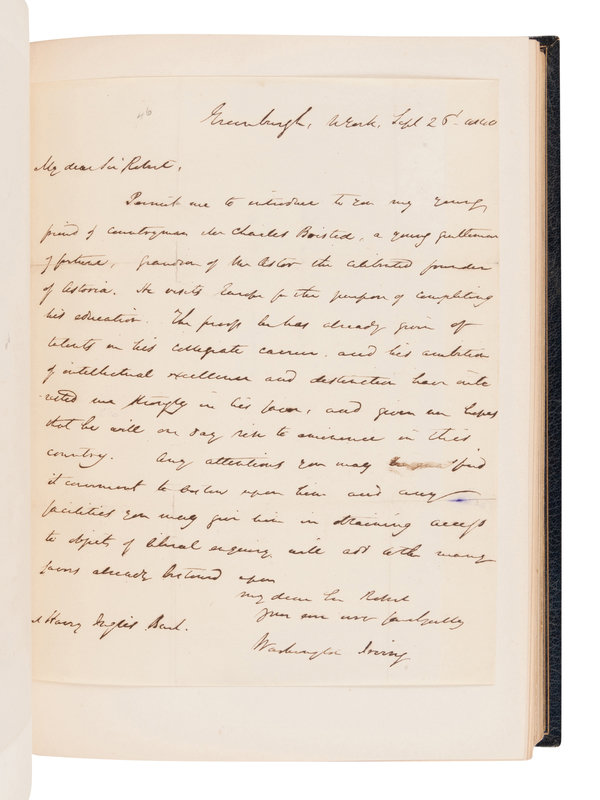 46
Greenburgh, NYork, Sept 26th 1840
My dear Sir Robert,
Permit me to introduce to you my young
friend & countryman Mr Charles Bristed, a young gentleman
of fortune, grandson of Mr Astor the celebrated founder
of Astoria. He visits Europe for the purpose of completing
his education. The proofs he has already given of
talents in his collegiate career, and his ambition
of intellectual excellence and distinction have inte
rested me strongly in his favor, and given me hopes
that he will one day rise to eminence in this
country. Any attentions you may find
it convenient to bestow upon him and any
facilities you may give him in obtaining access
to objects of liberal enquiry will add to the many
favors already bestowed upon
my dear Sir Robert
yours ever most faithfully
Washington Irving
t Harry Inglis Bart.